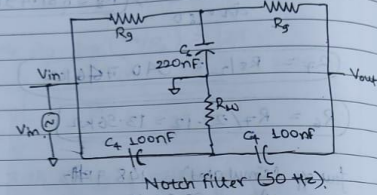 R9
R9
C6
220nF
Vin
Vout
R10
Vin
C4 100nF
C4 100nF
Notch filter (50 Hz).